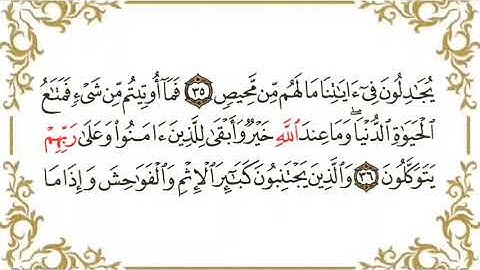 يُجَٰدِلُونَ فِىٓ ءَايَٰتِنَا مَا لَهُم مِّن مَّحِيصٍ ٣٥ فَمَآ أُوتِيتُم مِّن شَىْءٍ فَمَتَٰعُ
الْحَيَوٰةِ الدُّنْيَا ۖ وَمَا عِندَ اللَّهِ خَيْرٌ وَأَبْقَىٰ لِلَّذِينَ ءَامَنُوا۟ وَعَلَىٰ رَبِّهِمْ
يَتَوَكَّلُونَ ٣٦ وَالَّذِينَ يَجْتَنِبُونَ كَبَٰٓئِرَ الْإِثْمِ وَالْفَوَٰحِشَ وَإِذَا مَا